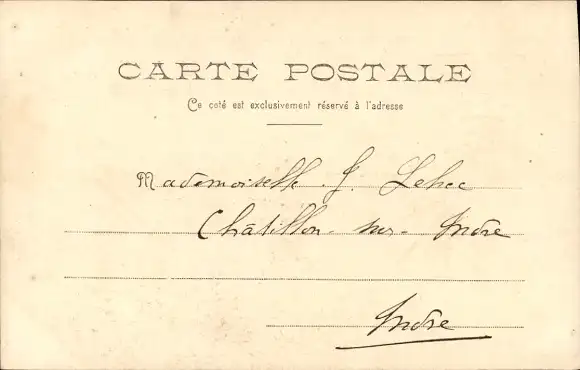 CARTE POSTALE
Ce coté est exclusivement réservé à l'adresse
Mademoiselle J. Lehec
Châtillon-sur-Indre
Indre